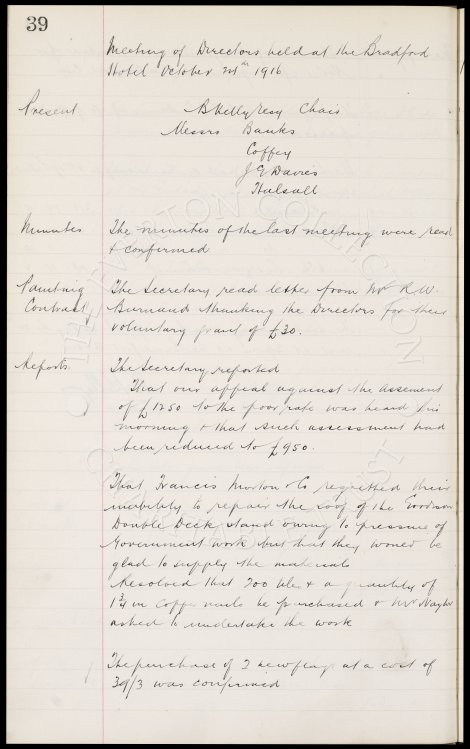 39
Meeting of Directors held at the Bradford
Hotel October 1916
Present B Kelly Esq Chair
Messrs Banks
Coffey
J E Davies
Halsall
Minutes The minutes of the last meeting were read
& confirmed
Painting The Secretary read letter from Mr R. W.
Contract thanking the Directors for their
voluntary grant of £30.
Reports The Secretary reported
That our appeal against the assesment
of £1250 to the poor rate was heard this
morning & that such assessment had
been reduced to £950.
That Francis Morton & Co regretted their
inability to repair the roof of the Goodison
Double Deck stand owing to pressure of
Government work but that they would be
glad to supply the materials
Resolved that 200 tiles & a quantity of
1¾ in Copper nails be purchased & Mr
asked to undertake the work
The purchase of 2 new flags at a cost of
39/3 was confirmed
THE EVERTON COLLECTION